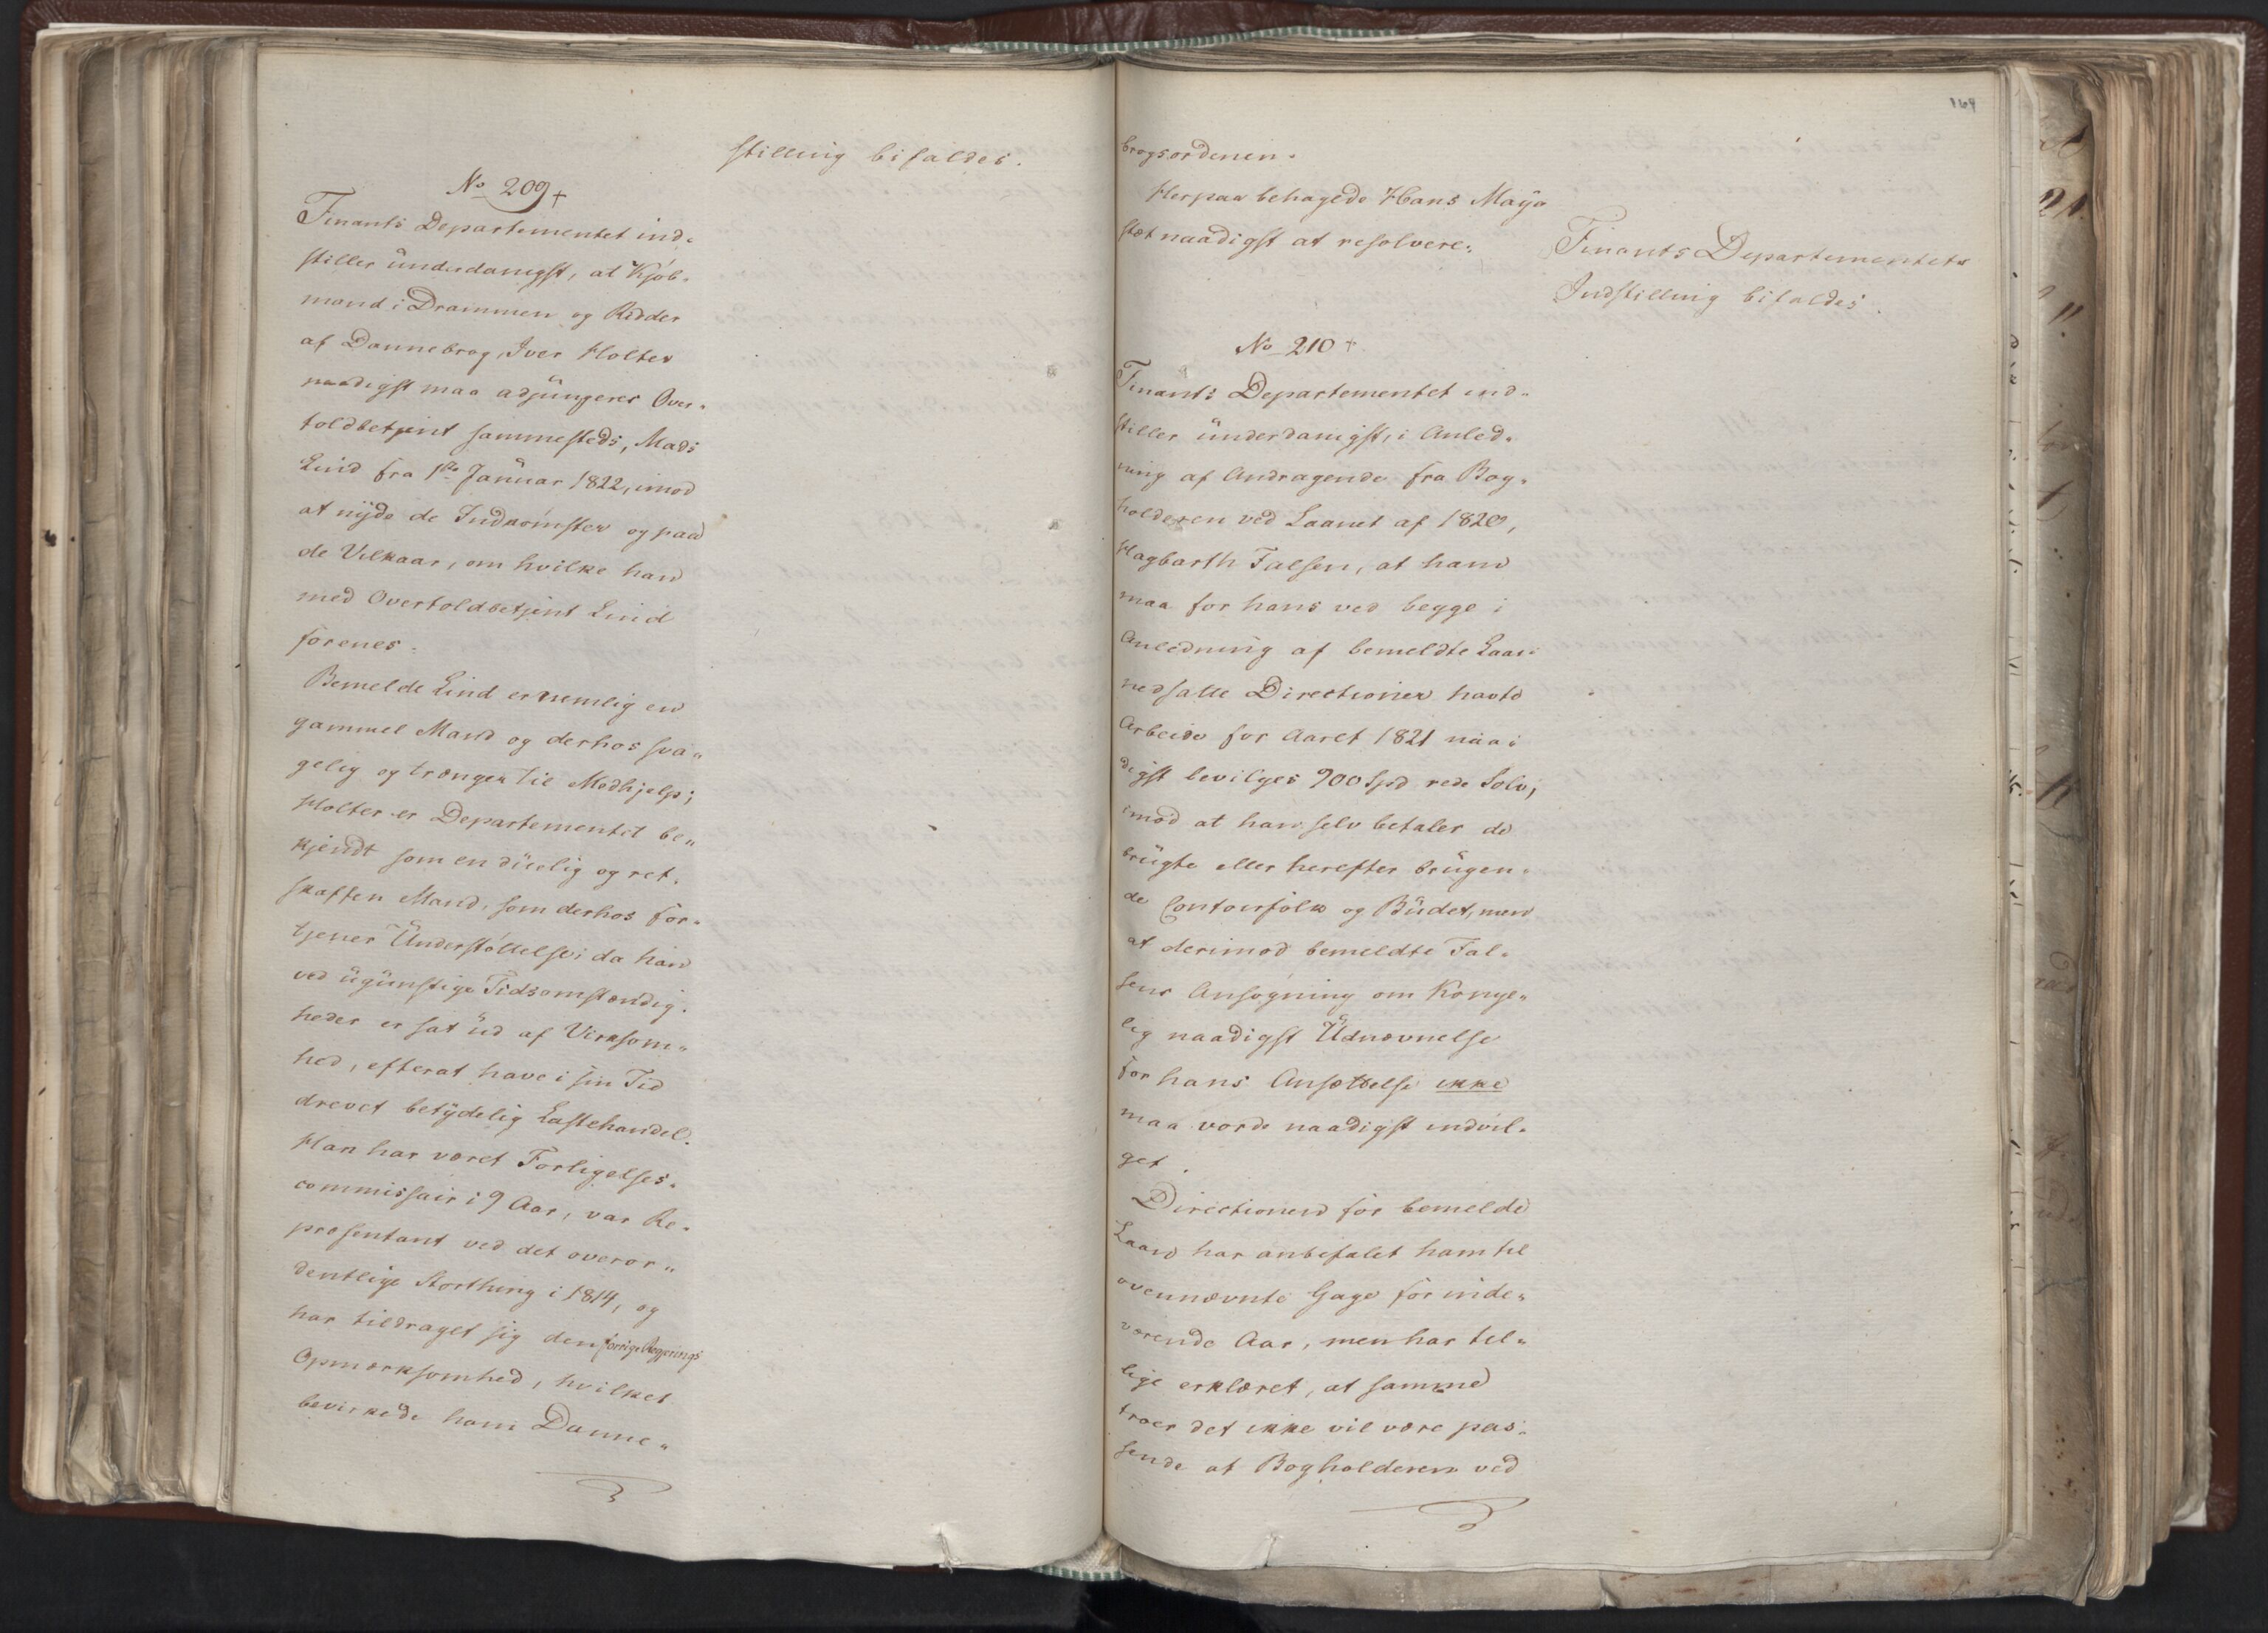 stilling bifaldes.
No 209 +
Finants Departementet ind-
stiller ünderdanigst, at Kjøb-
mand i Drammen og Ridder
af Dannebrog, Iver Holter
naadigst maa adjüngeres Over-
toldbetjent sammesteds, Mads
Lind fra 1ste Janüar 1822, imod
at nÿde de Indkomster og paa
de Vilkaar, om hvilke han
med Overtoldbetjent Lind
forenes.
Bemelde Lind er nemlig en
gammel Mand og derhos sva-
gelig og trænger til Medhjelp;
Holter er Departementet be-
kjendt som en düelig og ret-
skaffen Mand, som derhos for-
tjener Ünderstøttelse; da han
ved ügünstige Tidsomstændig-
heder er sat üd af Virksom-
hed, efterat have i sin Tid
drevet betÿdelig Lastehandel.
Han har været Forligelses-
commissair i 9 Aar, var Re-
præsentant ved det overor-
dentlige Storthing i 1814, og
har tildraget sig den forrige Regjerings
Opmærksomhed, hvilket
bevirkede ham Danne-
164
brogsordenen.
Herpaa behagede Hans Maÿe
stæt naadigst at resolvere:
Finants Departementets
Indstilling bifaldes.
No 210 +
Finants Departementet ind-
stiller ünderdanigst, i Anled-
ning af Andragende fra Bog-
holderen ved Laanet af 1820,
Hagbarth Falsen, at ham
maa for hans ved begge i
Anledning af bemeldte Laan
nedsatte Directioner havte
Arbeide for Aaret 1821 naa-
digst bevilges 900 Spd rede Sølv,
imod at han selv betaler de
brügte eller herefter brügen-
de Contoirfolk og Büdet, men
at derimod bemeldte Fal-
sens Ansøgning om Konge-
lig naadigst Üdnævnelse
for hans Ansættelse ikke
maa vorde naadigst indvil-
get.
Directionen for bemelde
Laan har anbefalet ham til
ovennævnte Gage for inde-
værende Aar, men har til-
lige erklæret, at samme
troer det ikke vil være pas-
sende at Bogholderen ved